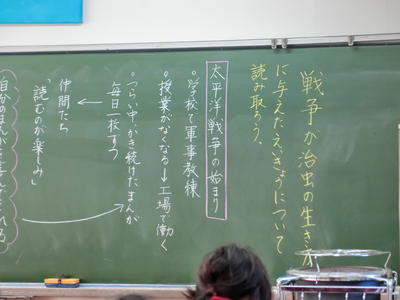 戦争が治虫の生き方
に与えたえいきょうについて
読み取ろう。
太平洋戦争の始まり
・学校で軍事教練
・授業がなくなる→工場で働く
・つらい中かき続けたまんが
毎日一枚ずつ
仲間たち
「読むのが楽しみ」
自分のまんがを喜んでくれる